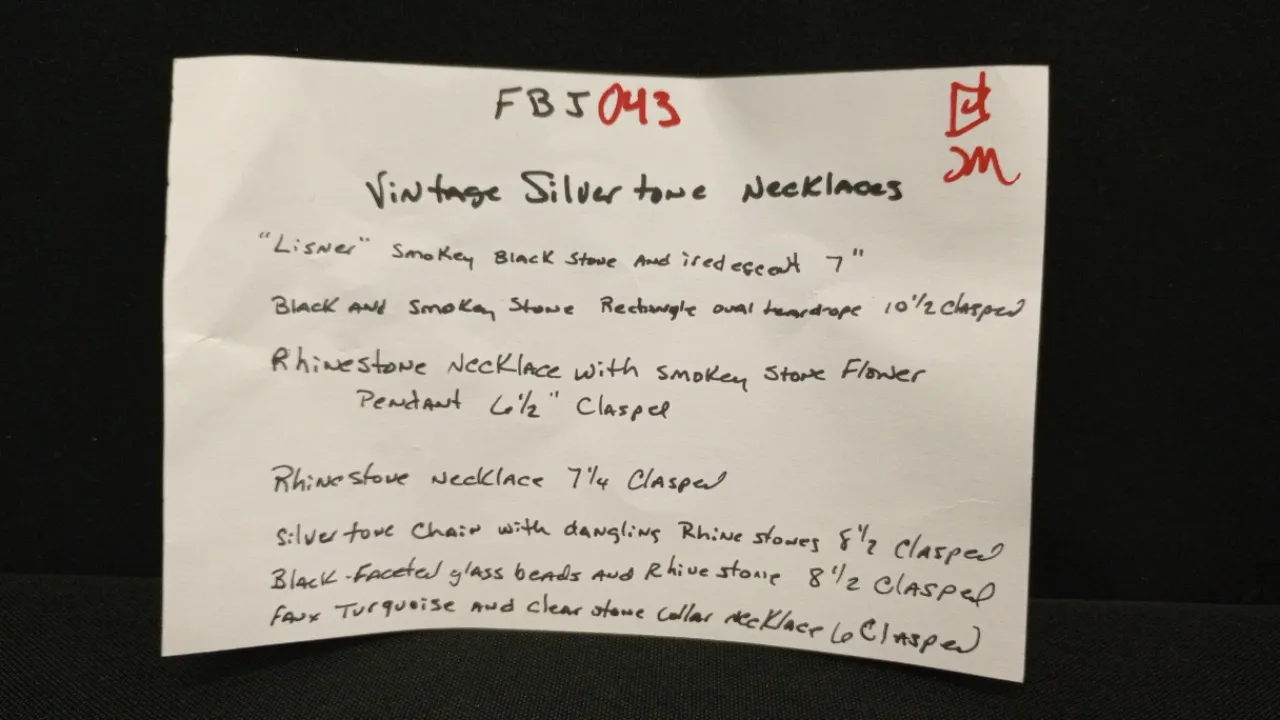 FBJ 043
JM
Vintage Silvertone Necklaces
"Lisner" Smokey Black Stone And iredescent 7"
Black And Smokey Stone Rectangle oval teardrope 10 1/2 Clasped
Rhinestone Necklace with smokey stone Flower
Pendant 6 1/2" Clasped
Rhinestone Necklace 7 1/4 Clasped
Silvertone Chain with dangling Rhinestones 8 1/2 Clasped
Black-Faceted glass beads and Rhinestone 8 1/2 Clasped
Faux Turquoise and clear stone Collar necklace 6 Clasped